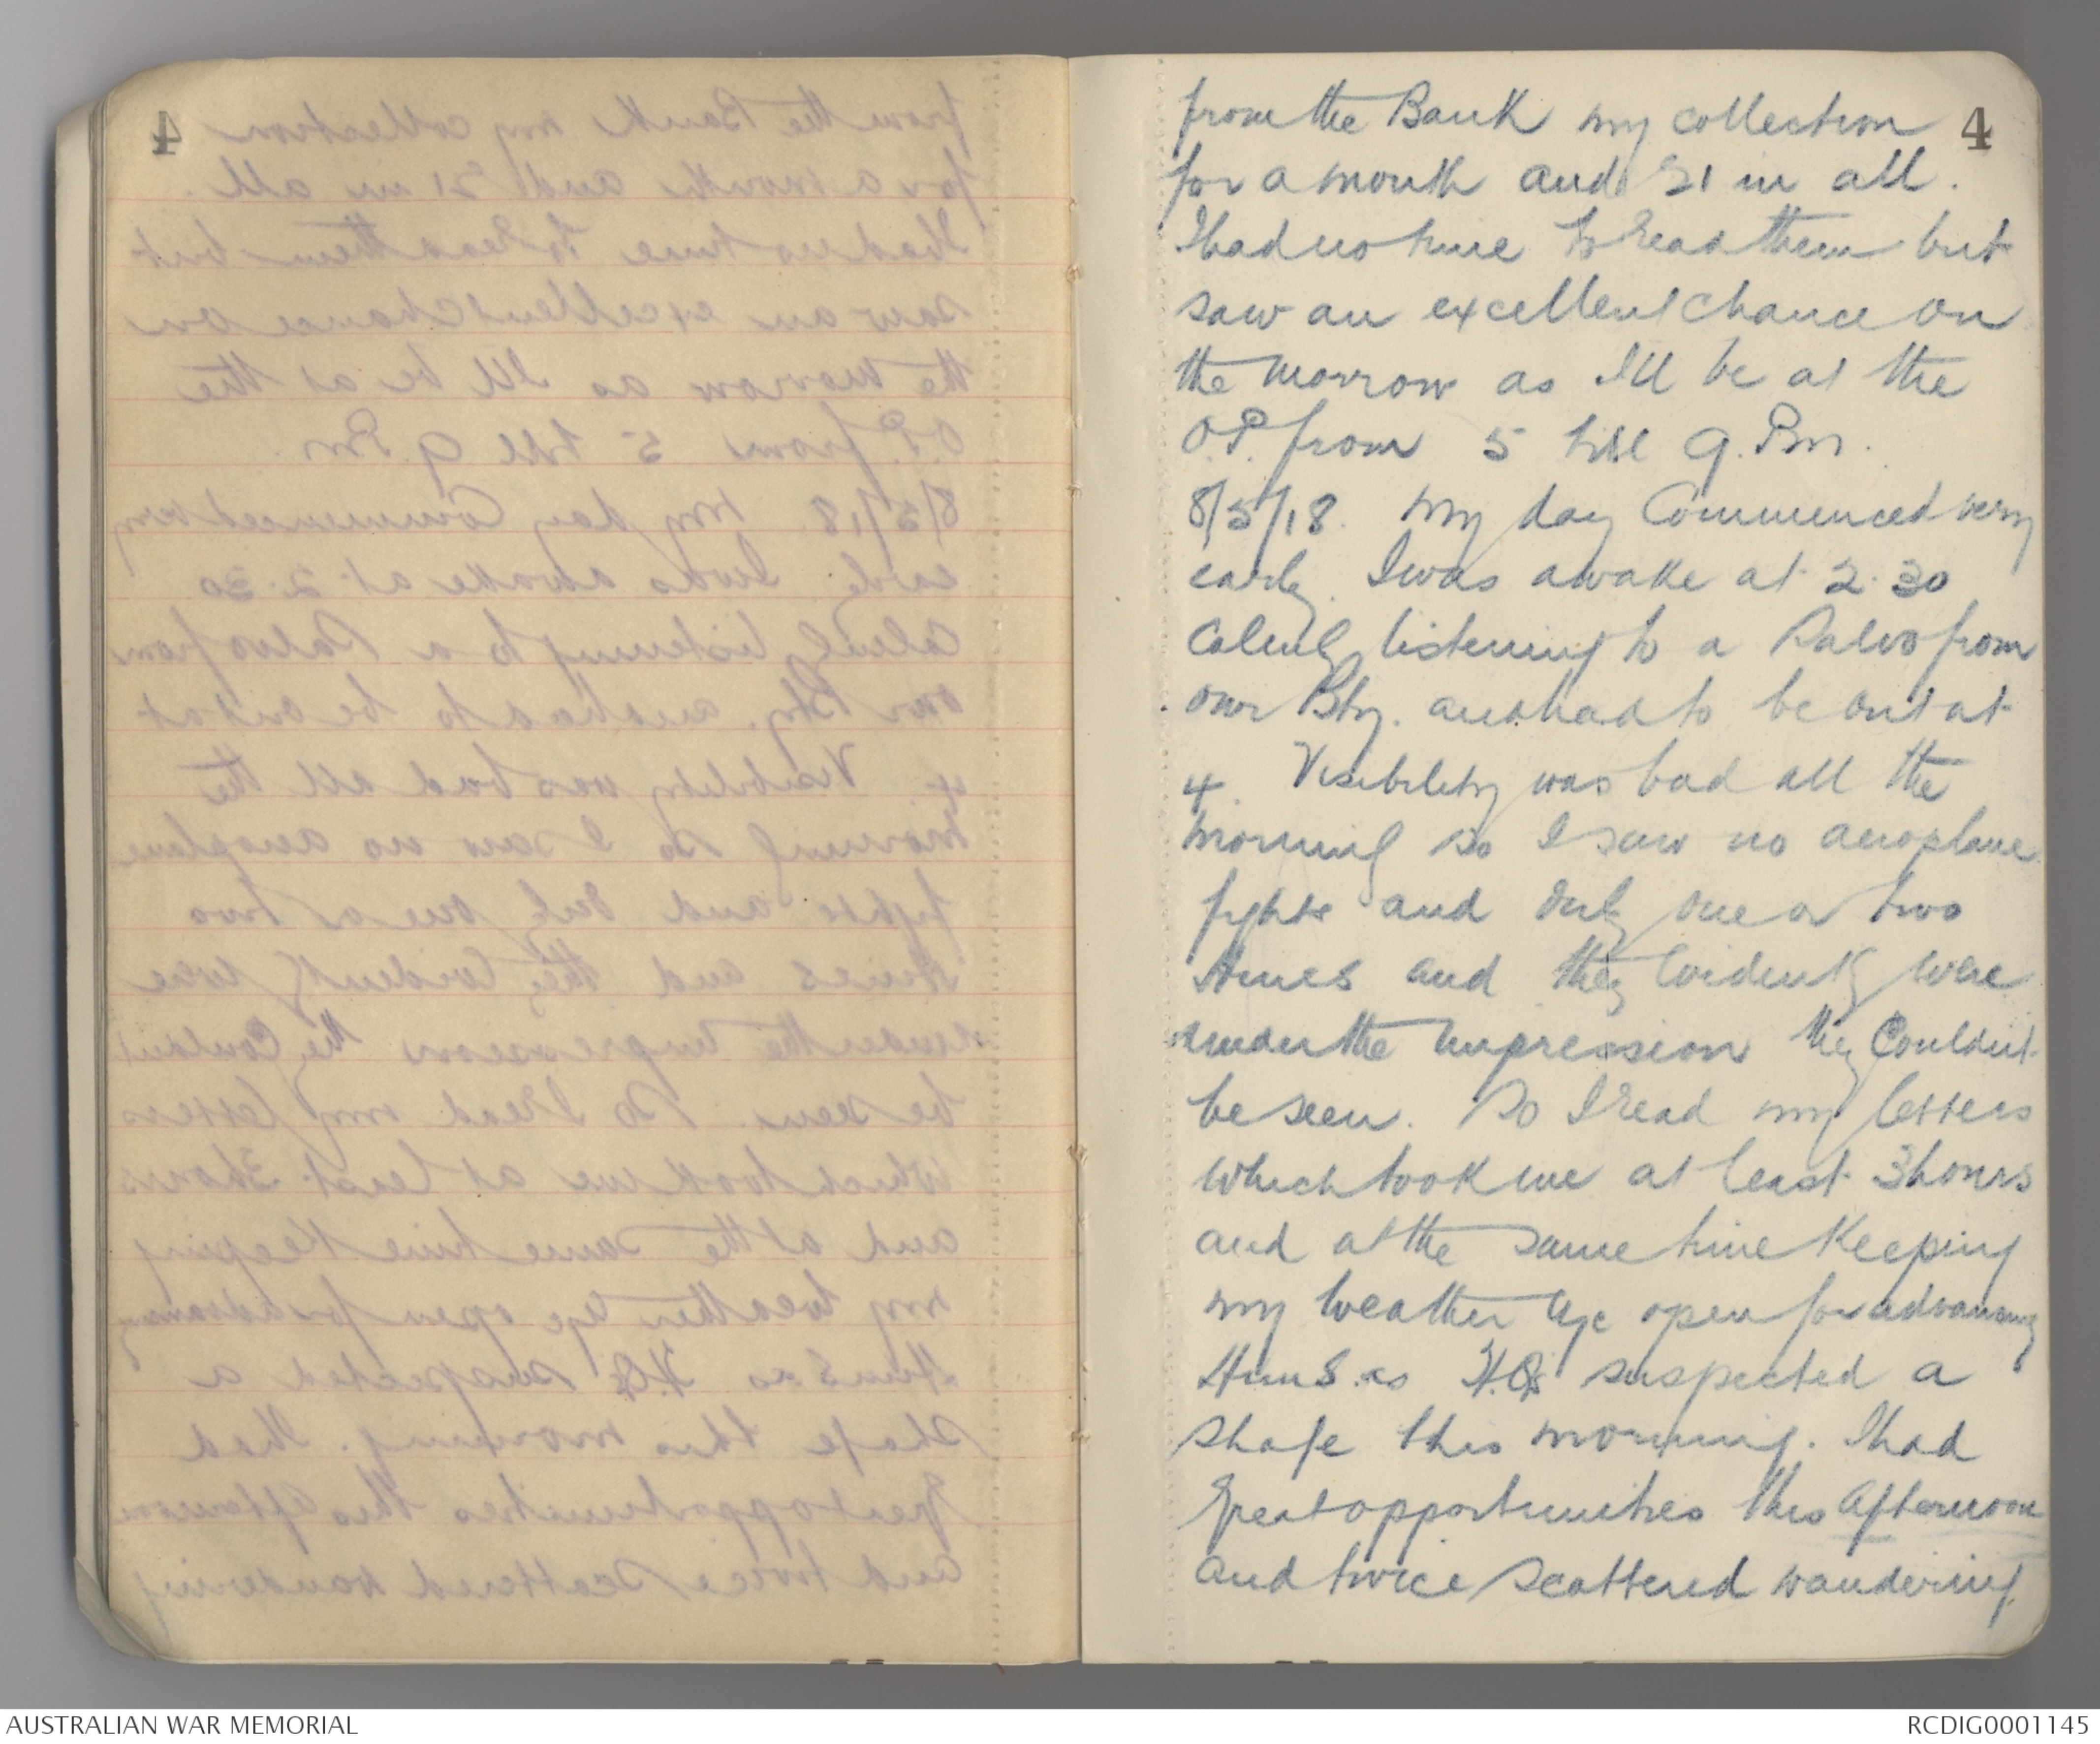 4
from the Bank my collection
for a month and 21 in all.
I had no time to read them but
saw an excellent chance on
the morrow as I'll be at the
O.P. from 5 till 9. Pm.
8/5/18. My day Commenced very
early. I was awake at 2.30
calmly listening to a Salvo from
our Bty. and had to be out at
4. Visibility was bad all the
morning so I saw no aeroplane
fights and only one or two
Hunes and they evidently were
under the impression they Couldnt
be seen. So I read my letters
which took me at least 3 hours
and at the same time Keeping
my weather eye open for advancing
Huns as H.Q. suspected a
shafe this morning. I had
great opportunities this afternoon
and twice scattered wandering
AUSTRALIAN WAR MEMORIAL
RCDIG0001145